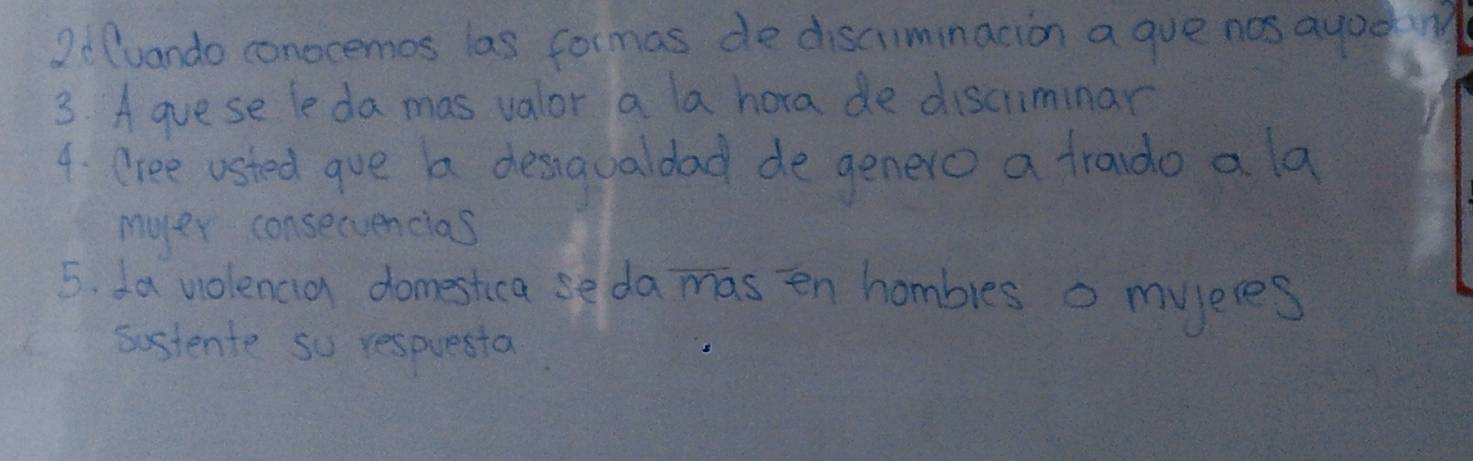 2 ¿Cuando conocemos las formas de discriminación a que nos ayudan?
3. A que se le da mas valor a la hora de discriminar
4. Cree usted que la desigualdad de genero a traido a la
mujer consecuencias
5. La violencia domestica se da mas en hombres o mujeres
Sustente su respuesta.